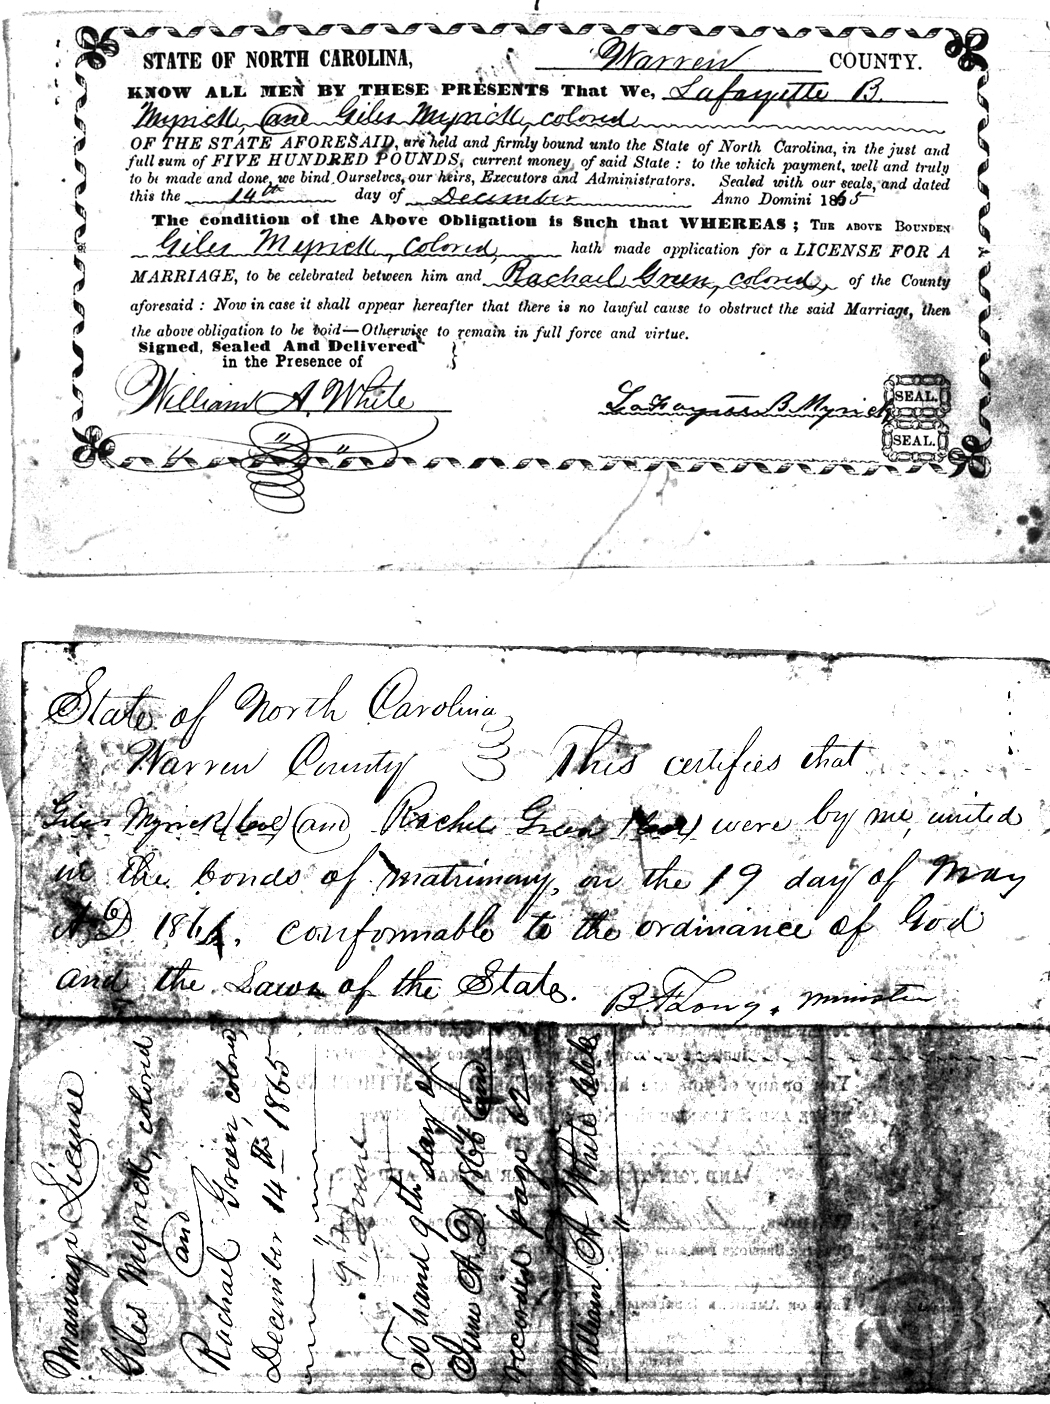 STATE OF NORTH CAROLINA, Warren COUNTY.
KNOW ALL MEN BY THESE PRESENTS That We, Lafayette B.
Myrick, and Giles Myrick, colored
OF THE STATE AFORESAID, are held and firmly bound unto the State of North Carolina, in the just and
full sum of FIVE HUNDRED POUNDS, current money of said State : to the which payment, well and truly
to be made and done, we bind Ourselves, our heirs, Executors and Administrators. Sealed with our seals, and dated
this the 14th day of December Anno Domini 1865
The condition of the Above Obligation is Such that WHEREAS ; THE ABOVE BOUNDEN
Giles Myrick, colored, hath made application for a LICENSE FOR A
MARRIAGE, to be celebrated between him and Rachael Green, colored, of the County
aforesaid : Now in case it shall appear hereafter that there is no lawful cause to obstruct the said Marriage, then
the above obligation to be void—Otherwise to remain in full force and virtue.
Signed, Sealed And Delivered
in the Presence of
William A. White
LaFayette B Myrick SEAL.
SEAL.
State of North Carolina,
Warren County } This certifies that
Giles Myrick (col) and Rachel Green (col) were by me, united
in the bonds of matrimony, on the 19 day of May
A D 1866. conformable to the ordinance of God
and the Laws of the State. B. F. Long, minister
Marriage License
Giles Myrick, colored
and
Rachael Green, colored,
December 14th 1865
9th June
To hand 9th day of
June A. D. 1866 and
recorded page 62
William A White Clk